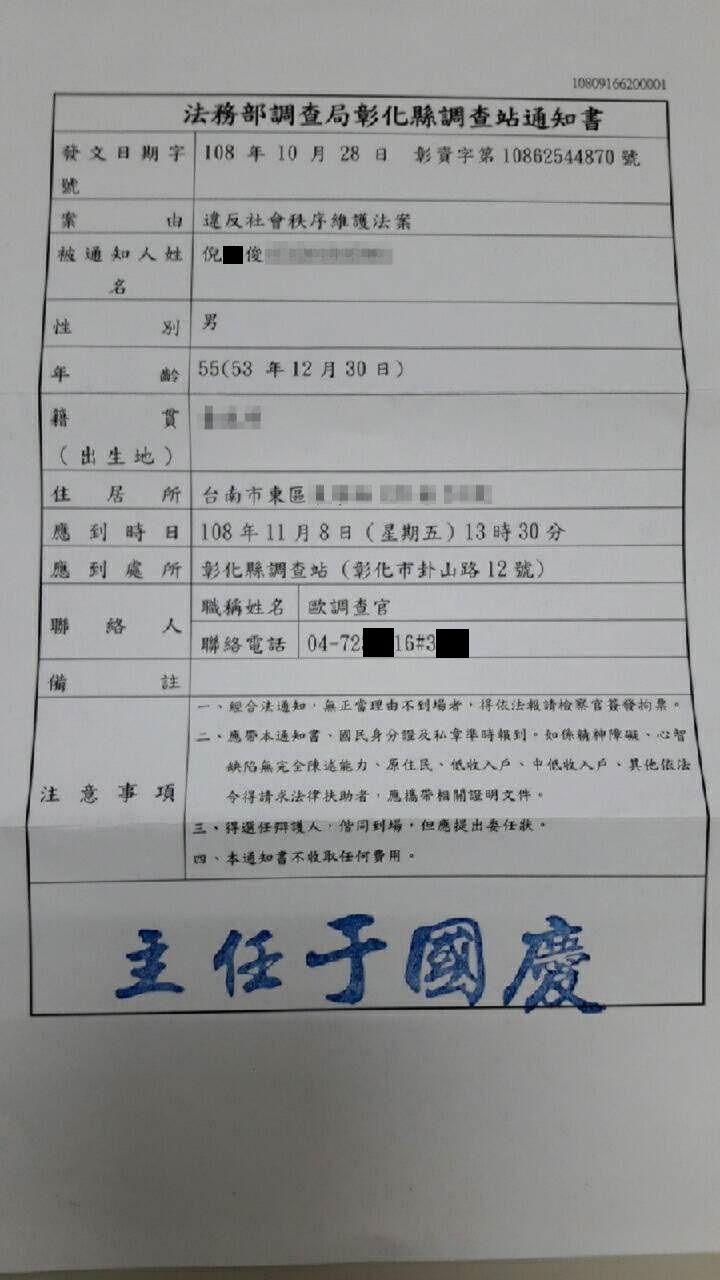 10809166200001
法務部調查局彰化縣調查站通知書
發文日期字號 108 年 10 月 28 日 彰資字第 10862544870 號
案由 違反社會秩序維護法案
被通知人姓名 倪 俊
性別 男
年齡 55(53 年 12 月 30 日)
籍貫
(出生地)
住居所 台南市東區
應到時日 108 年 11 月 8 日(星期五)13 時 30 分
應到處所 彰化縣調查站(彰化市卦山路 12 號)
聯絡人 職稱姓名 歐調查官
聯絡電話 04-72 16#3
備註
注意事項
一、經合法通知,無正當理由不到場者,得依法報請檢察官簽發拘票。
二、應帶本通知書、國民身分證及私章準時報到。如係精神障礙、心智
缺陷無完全陳述能力、原住民、低收入戶、中低收入戶、其他依法
令得請求法律扶助者,應攜帶相關證明文件。
三、得選任辯護人,偕同到場,但應提出委任狀。
四、本通知書不收取任何費用。
主任于國慶